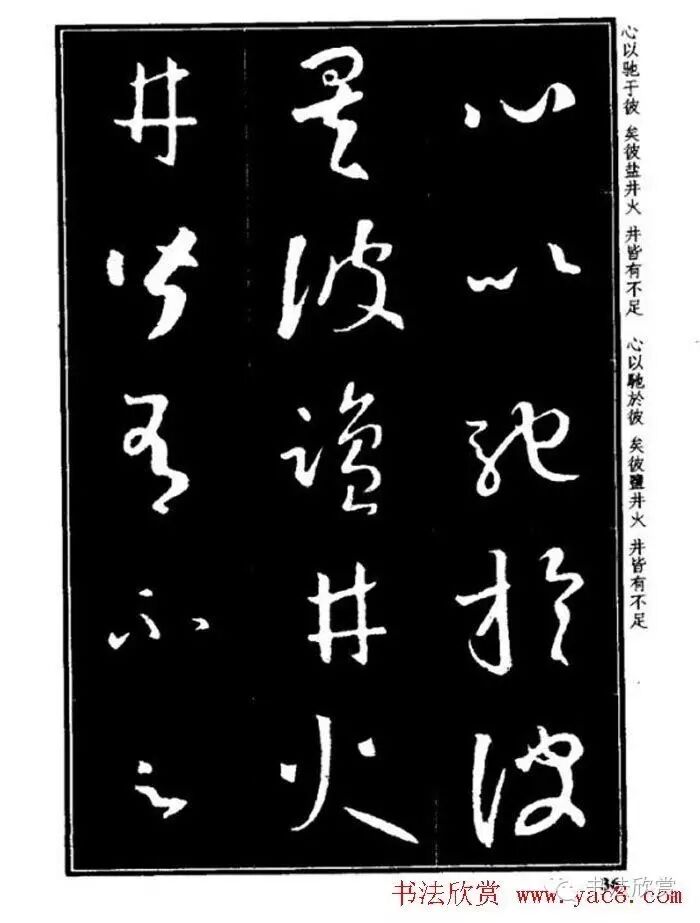 心以驰于彼 矣彼盐井火 井皆有不足 心以馳於彼 矣彼鹽井火 井皆有不足
心以馳於彼
矣彼鹽井火
井皆有不足
36
书法欣赏
书法欣赏 www.yac8.com